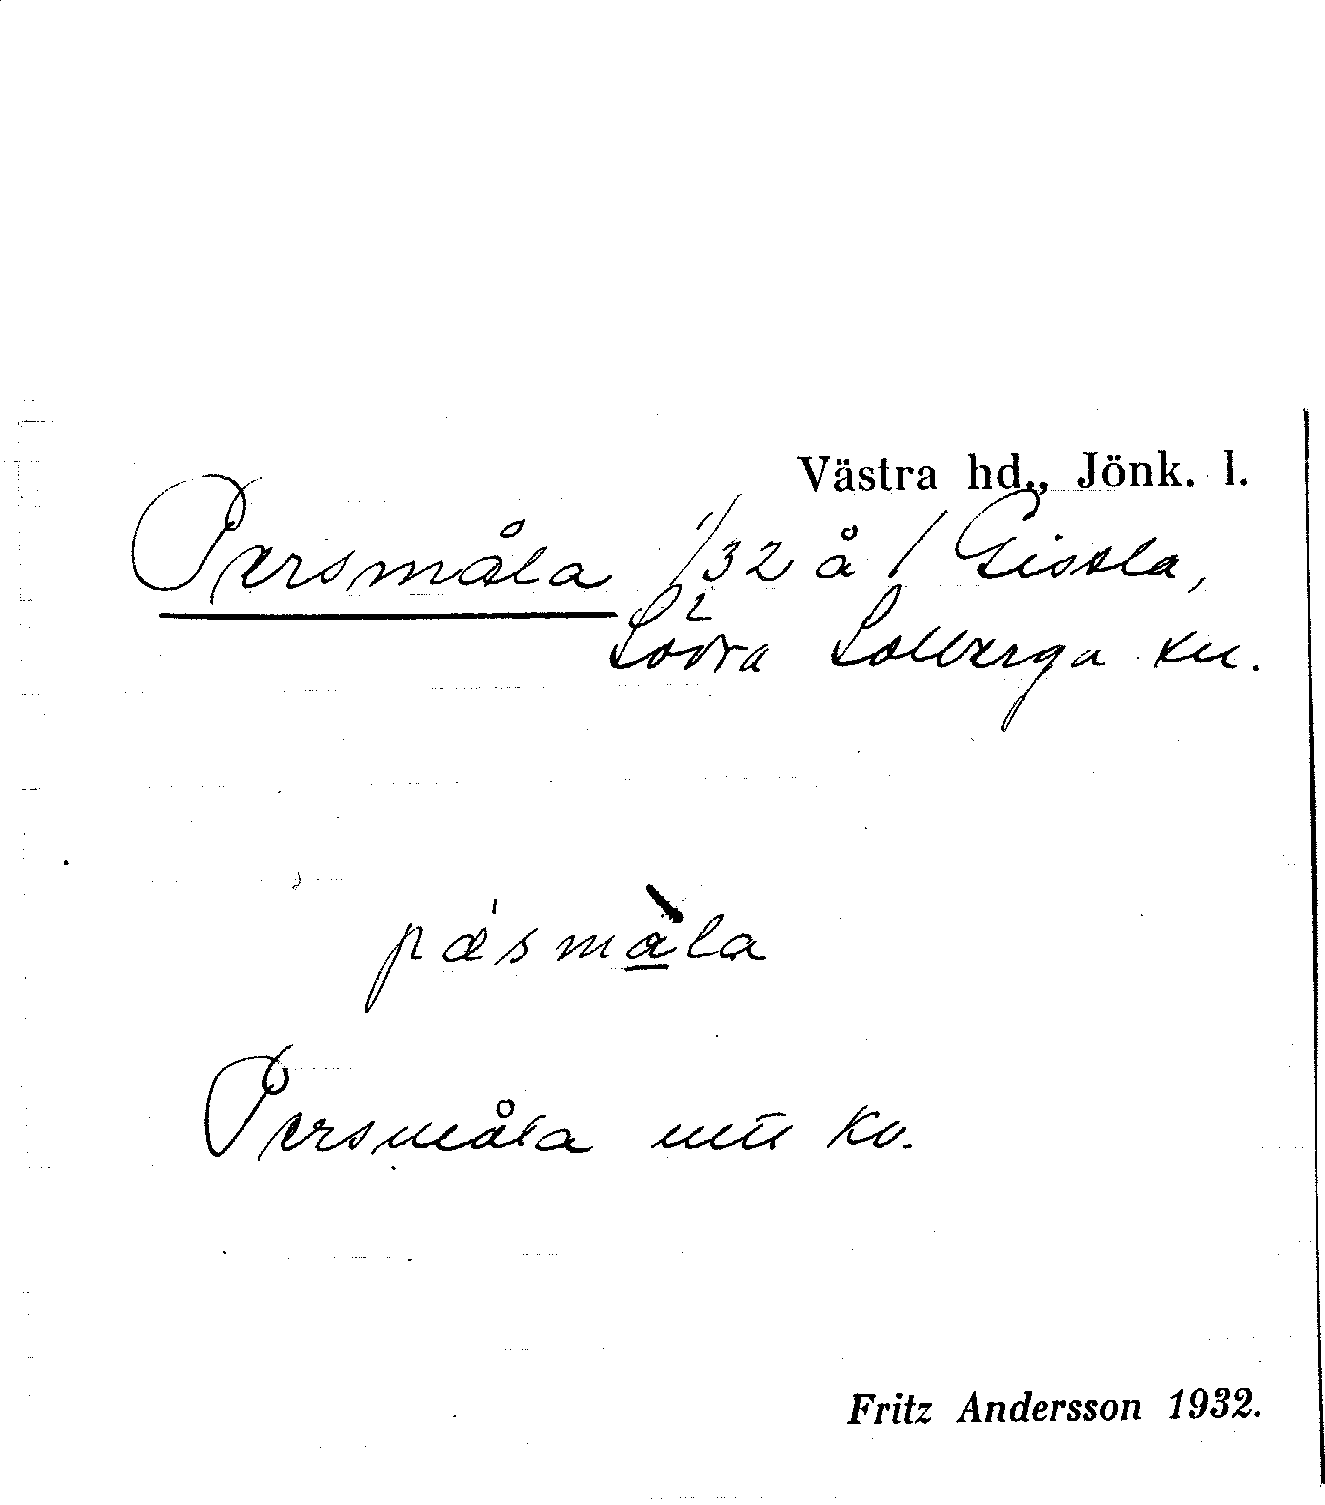 Västra hd., Jönk. l.
Persmåla 1/32 å / Gissla,
Södra Solberga sn.
pæ'smàla
Persmåla
Fritz Andersson 1932.